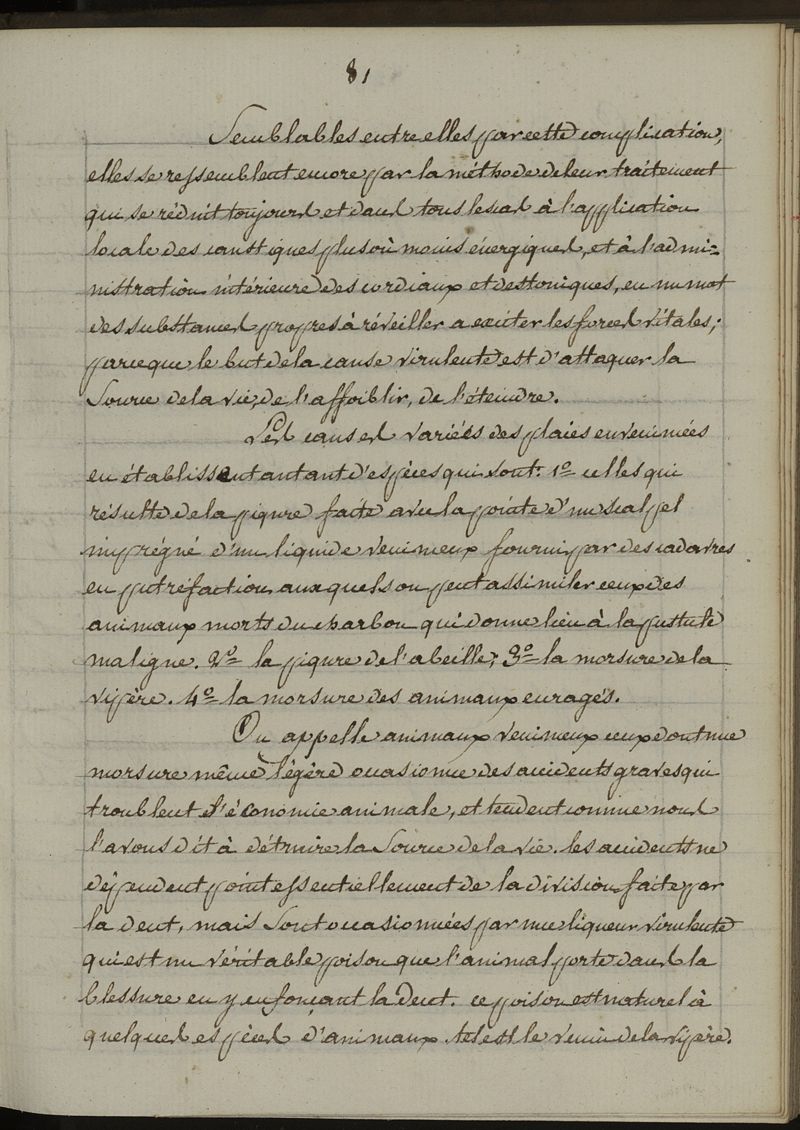 81
Semblables entre elles par cette complication,
elles se ressemblent encore par la méthode de leur traitement
qui se réduit toujours et dans tous les cas à l'application
locale des caustiques plus où moins énergiques, et à l'admi=
nistration intérieure des cordiaux et des toniques, en un mot
des substances propres à réveiller a exciter les forces vitales;
parceque le but de la cause virulente est d'attaquer la
Source de la vie, de l'affoiblir, de l'éteindre.
Les causes variées des plaies envenimées
en établissent autant d'espèces qui sont: 1º celles qui
résulte de la piqure faite avec la pointe d'un scalpel
imprégné d'un liquide venimeux fourni par des cadavres
en putréfaction auxquels on peut assimiler ceux des
animaux morts du charbon qui donne lieu à la pustule
maligne. 2º la piqure de l'abeille; 3º la morsure de la
vipère. 4º la morsure des animaux enragés.
On appelle animaux venimeux ceux dont une
morsure même légère occasionne des accidents graves qui
troublent l'économie animale, et tendent comme nous
l'avons dit à détruire la Source de la vie. les accidents ne
dépendent point essentiellement de la division faite par
la dent, mais Sont occasionnées par une liqueur virulente
qui est un véritable poison que l'animal porte dans la
blessure en y enfonçant la dent. ce poison est naturel à
quelques espèces d'animaux. tel est le venin de la vipère.